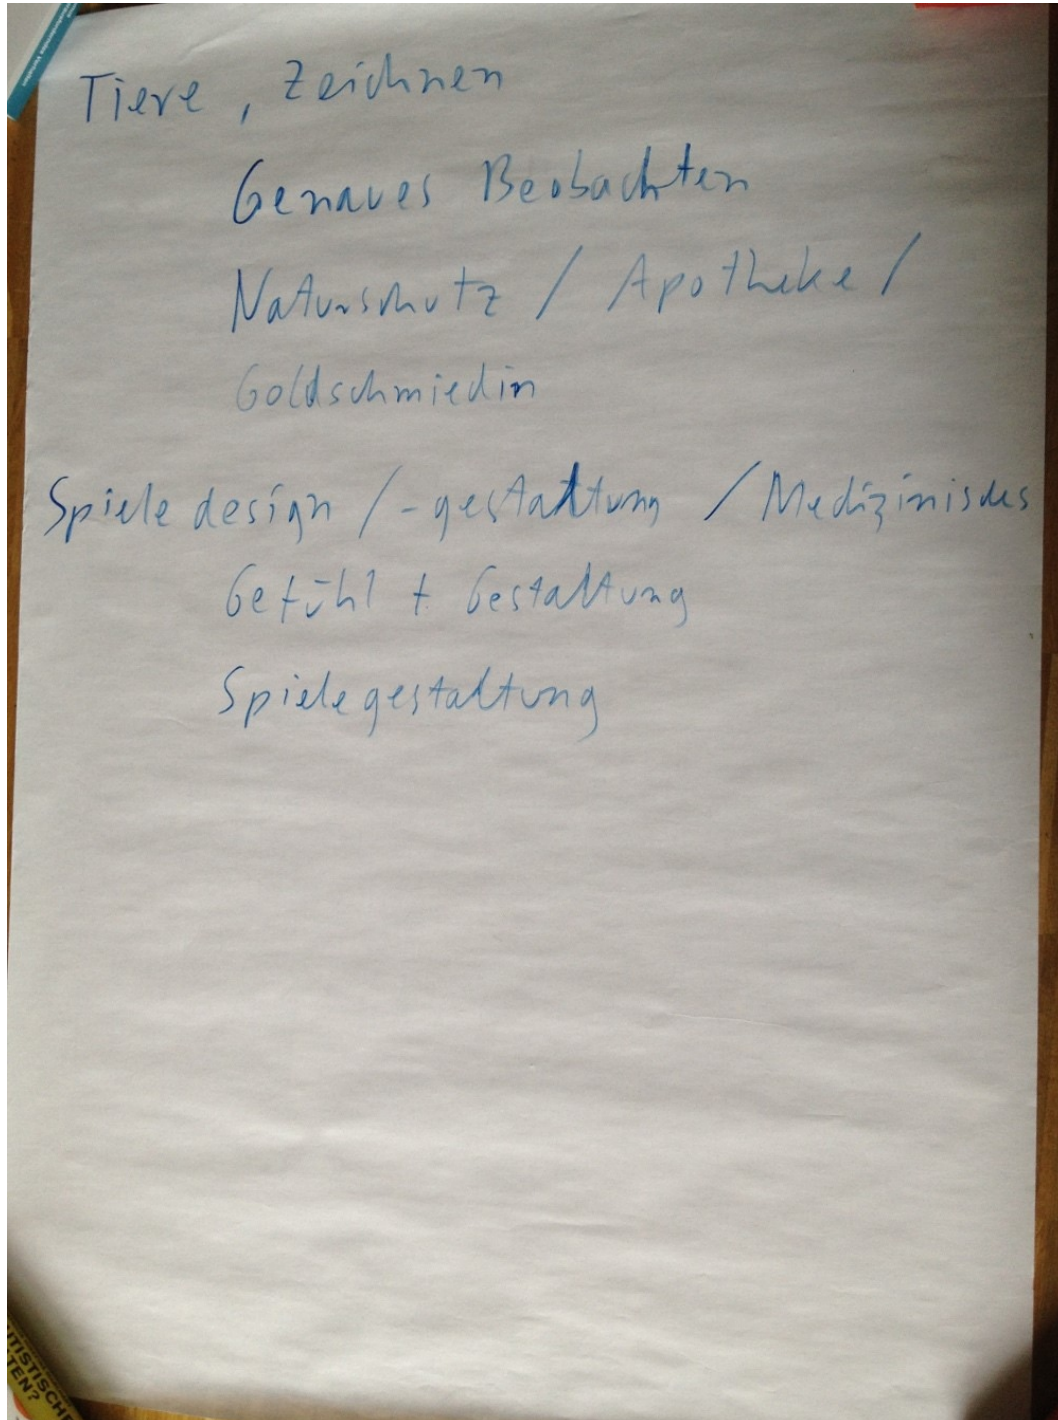 Tiere, Zeichnen
Genaues Beobachten
Naturschutz / Apotheke /
Goldschmiedin
Spieledesign /-gestaltung / Medizinisches
Gefühl + Gestaltung
Spielegestaltung
TEN?